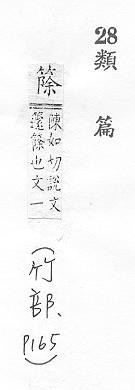 28類
篇
篨
陳如切說文
籧篨也文一
(竹部、
P165)